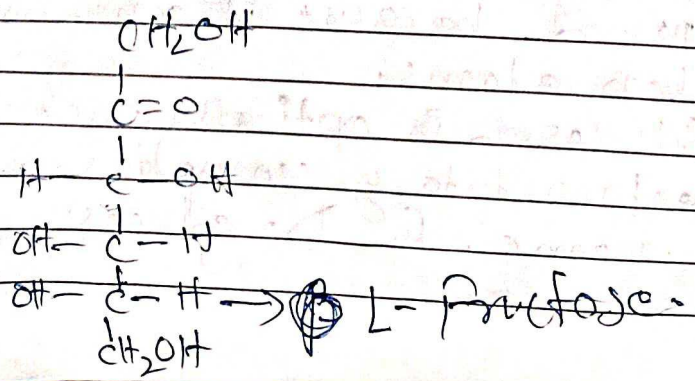 CH₂OH
C=O
H-C-OH
OH-C-H
OH-C-H → L-Fructose.
CH₂OH